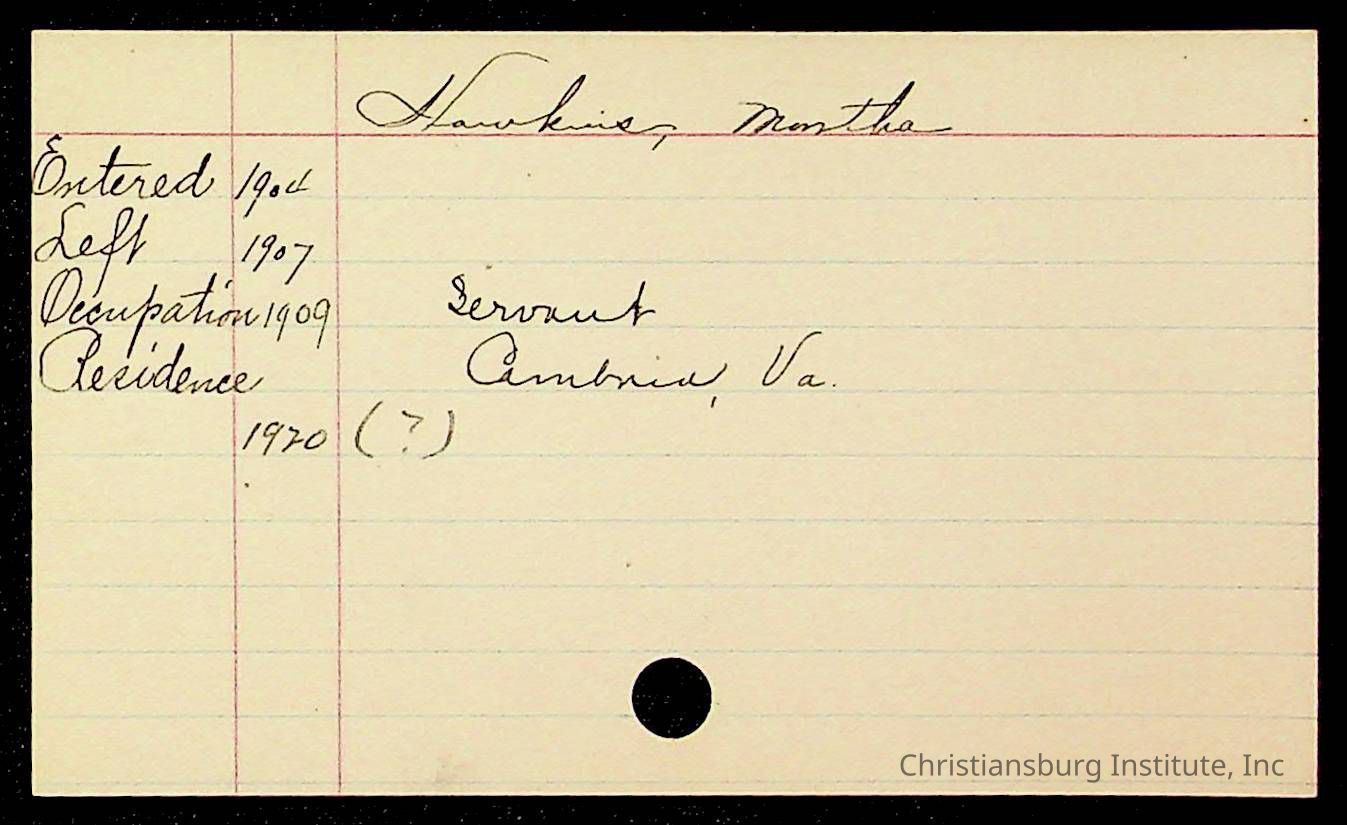 Hawkins, Montha
Entered 1904
Left 1907
Occupation 1909 Servant
Residence Cambria, Va.
1920 (?)
Christiansburg Institute, Inc